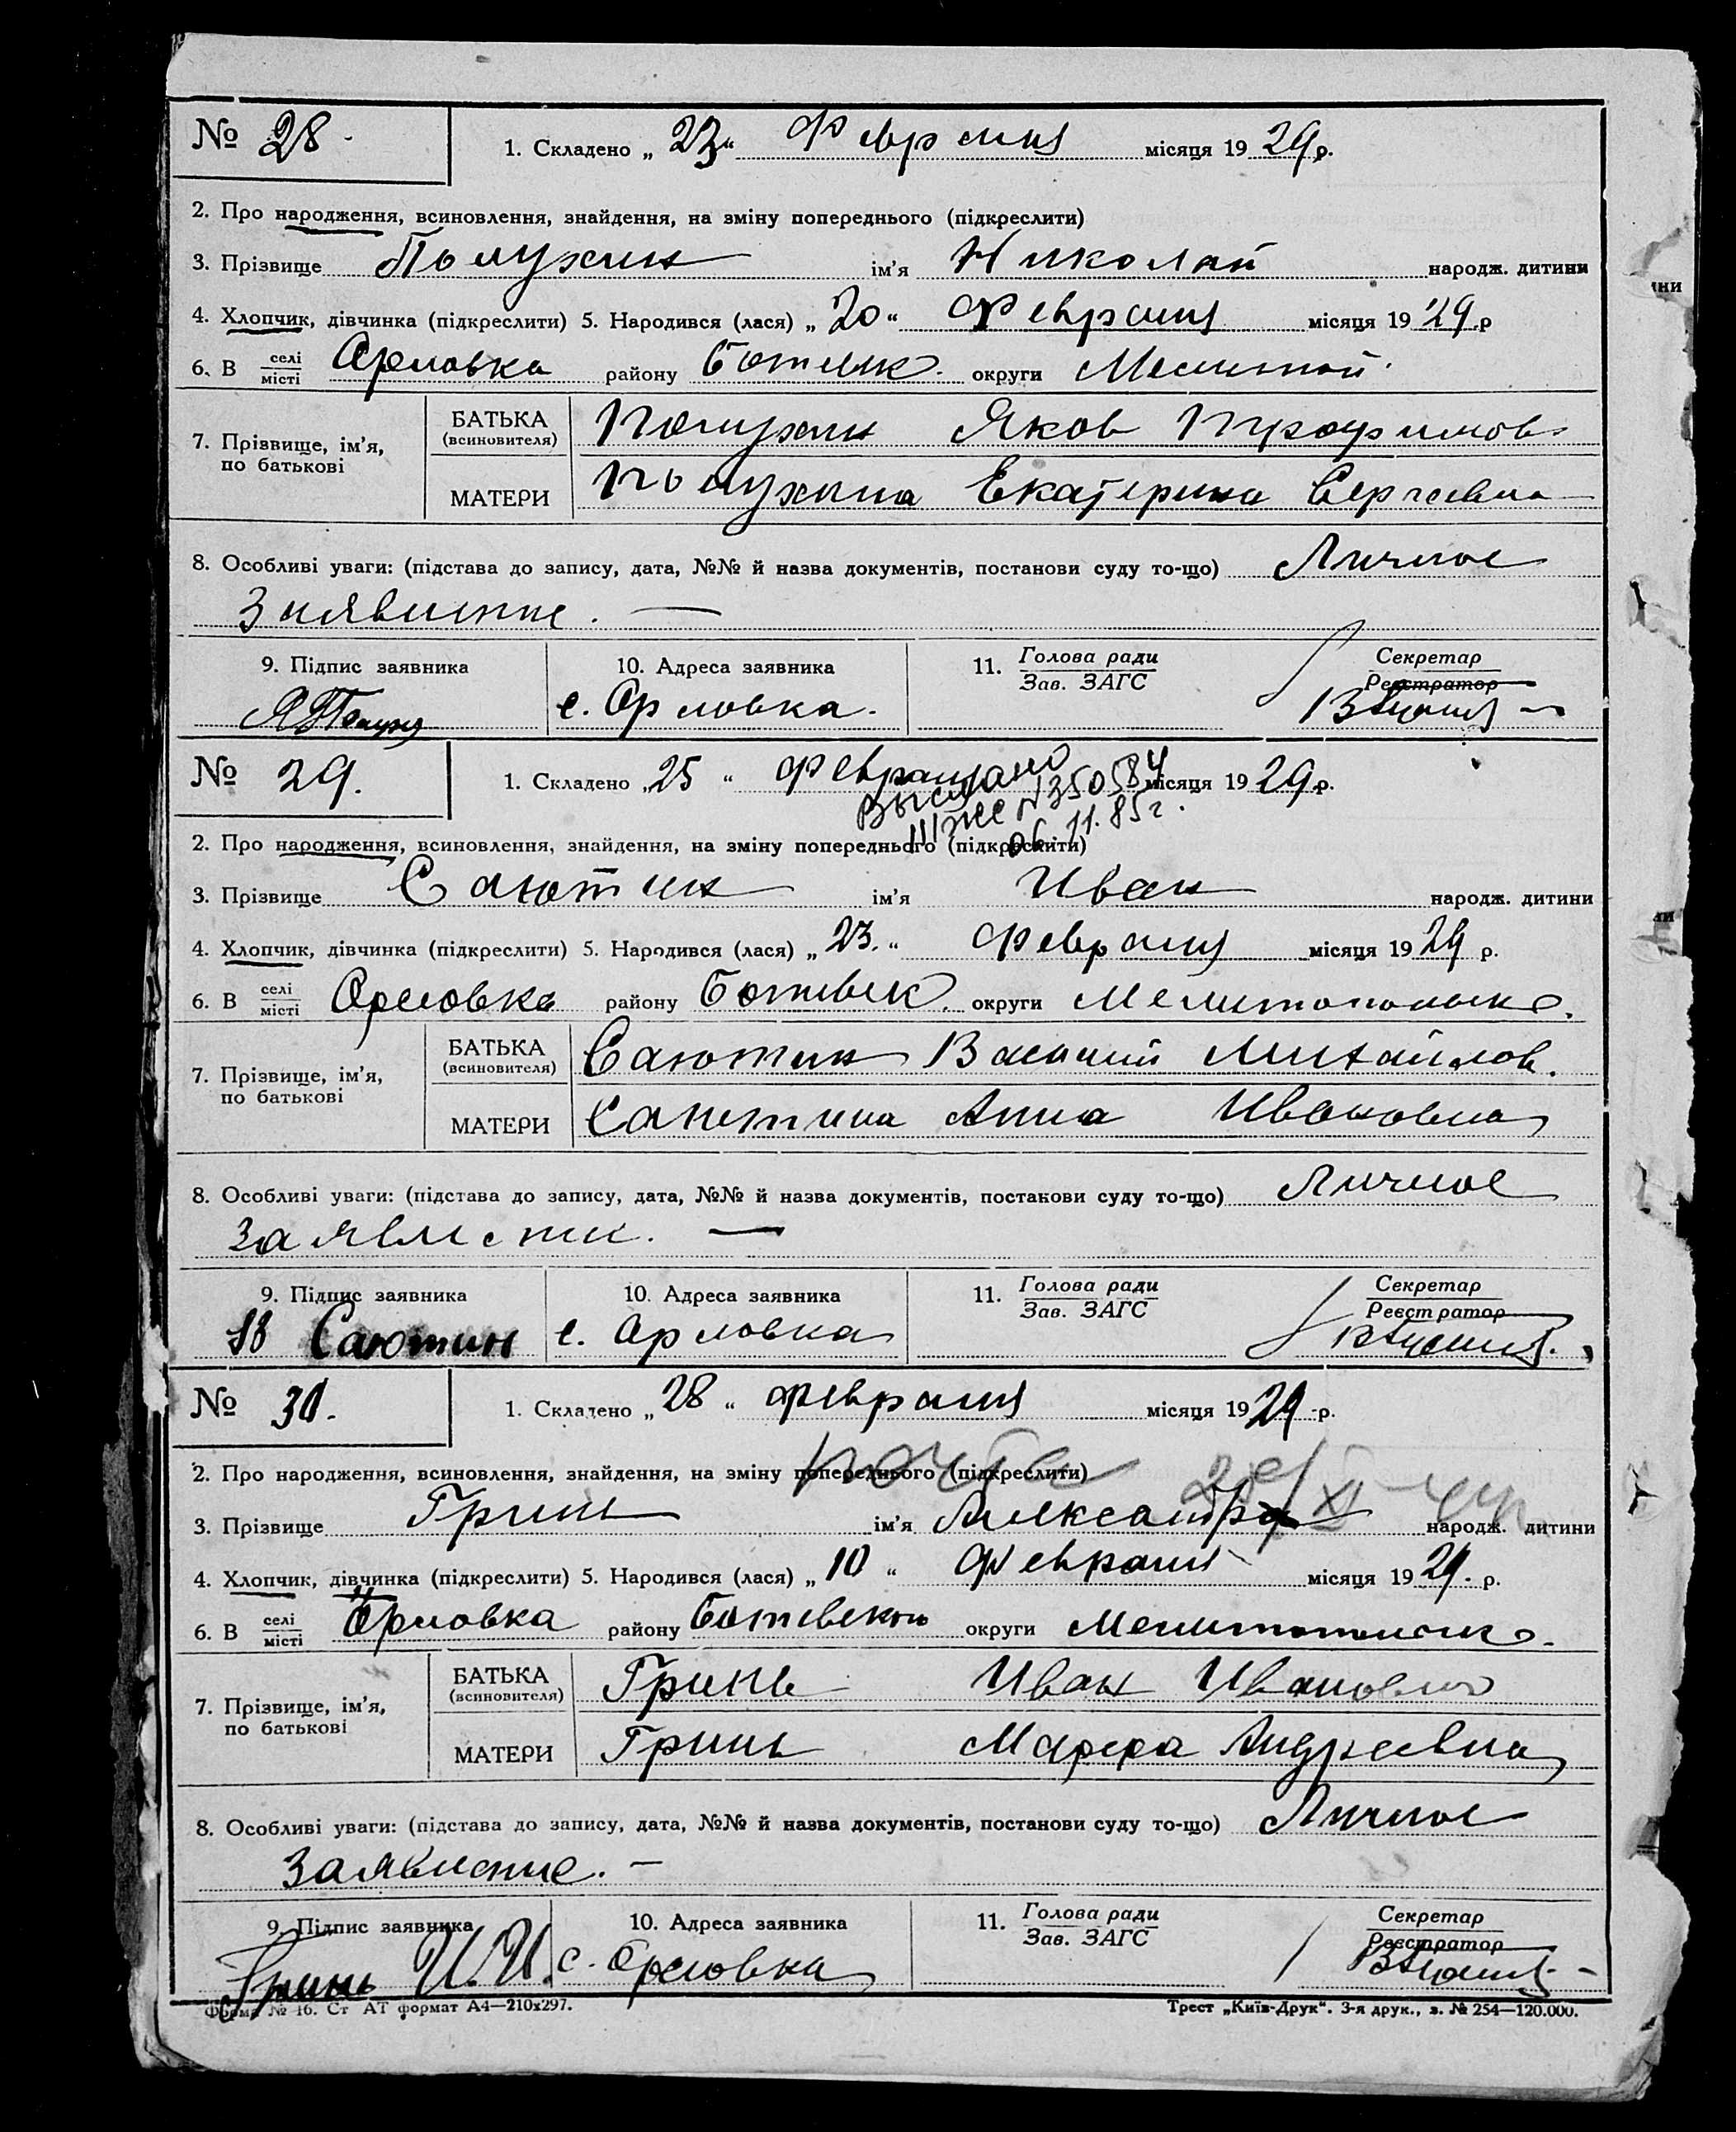 № 28. 1. Складено „ 23 “ Февраля місяця 1929р.
2. Про народження, всиновлення, знайдення, на зміну попереднього (підкреслити)
3. Прізвище Полухин ім'я Николай народж. дитини
4. Хлопчик, дівчинка (підкреслити) 5. Народився (лася) „ 20 “ Февраля місяця 1929.р
6. В селі/місті Орловка району Ботевск. округи Мелитоп.
7. Прізвище, ім'я, по батькові
БАТЬКА (всиновителя) Полухин Яков Трофимов
МАТЕРИ Полухина Екатерина Сергеевна
8. Особливі уваги: (підстава до запису, дата, №№ й назва документів, постанови суду то-що) Личное
Заявление. —
9. Підпис заявника 10. Адреса заявника 11. Голова ради/Зав. ЗАГС Секретар/Реєстратор
с. Орловка.
№ 29. 1. Складено „ 25 “ Февраля місяця 1929р.
Выслано
III ЖС №350584
06.11.85г.
2. Про народження, всиновлення, знайдення, на зміну попереднього (підкреслити)
3. Прізвище Саютин ім'я Иван народж. дитини
4. Хлопчик, дівчинка (підкреслити) 5. Народився (лася) „ 23. “ Февраля місяця 1929 р.
6. В селі/місті Орловка району Ботевск. округи Мелитопольск.
7. Прізвище, ім'я, по батькові
БАТЬКА (всиновителя) Саютин Василий Михайлов.
МАТЕРИ Саютина Анна Ивановна
8. Особливі уваги: (підстава до запису, дата, №№ й назва документів, постанови суду то-що) Личное
Заявление. —
9. Підпис заявника 10. Адреса заявника 11. Голова ради/Зав. ЗАГС Секретар/Реєстратор
Саютин с. Орловка
№ 30. 1. Складено „ 28 “ февраля місяця 1929 р.
почта
2. Про народження, всиновлення, знайдення, на зміну попереднього (підкреслити)
3. Прізвище Гринь ім'я Александра народж. дитини
4. Хлопчик, дівчинка (підкреслити) 5. Народився (лася) „ 10 “ Февраля місяця 1929. р.
6. В селі/місті Орловка району Ботевском округи Мелитопольск.
7. Прізвище, ім'я, по батькові
БАТЬКА (всиновителя) Гринь Иван Иванович
МАТЕРИ Гринь Марфа Андреевна
8. Особливі уваги: (підстава до запису, дата, №№ й назва документів, постанови суду то-що) Личное
Заявление. —
9. Підпис заявника 10. Адреса заявника 11. Голова ради/Зав. ЗАГС Секретар/Реєстратор
Гринь И.И. с. Орловка
Форма № 16. Ст АТ формат А4—210х297. Трест „Київ-Друк“. 3-я друк., з. № 254—120.000.